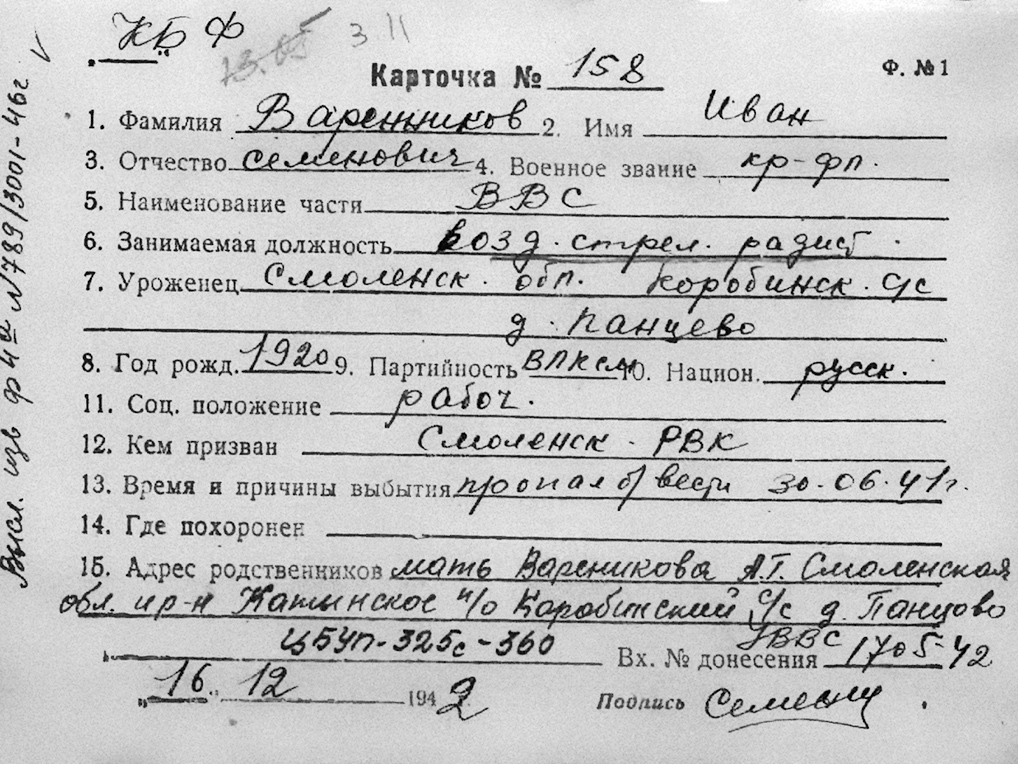 КБФ
13.05 3 11
Карточка № 158 Ф. № 1
1. Фамилия Варенников 2. Имя Иван
3. Отчество Семенович 4. Военное звание кр-фл.
5. Наименование части ВВС
6. Занимаемая должность возд. стрел. радист.
7. Уроженец Смоленск. обл. Коробинск. с/с
д. Панцево
8. Год рожд. 1920 9. Партийность ВЛКСМ 10. Национ. русск.
11. Соц. положение рабоч.
12. Кем призван Смоленск. РВК
13. Время и причины выбытия пропал б/вести 30.06.41г.
14. Где похоронен
15. Адрес родственников мать Вареникова А.Г. Смоленская
обл. и р-н Катынское п/о Коробинский с/с д. Панцово
ЦБУП-325с-360 УВВС
Вх. № донесения 1705-42
„16„ 12 1942 Подпись
Высл. изв ф 4а N789/3001-46г. V